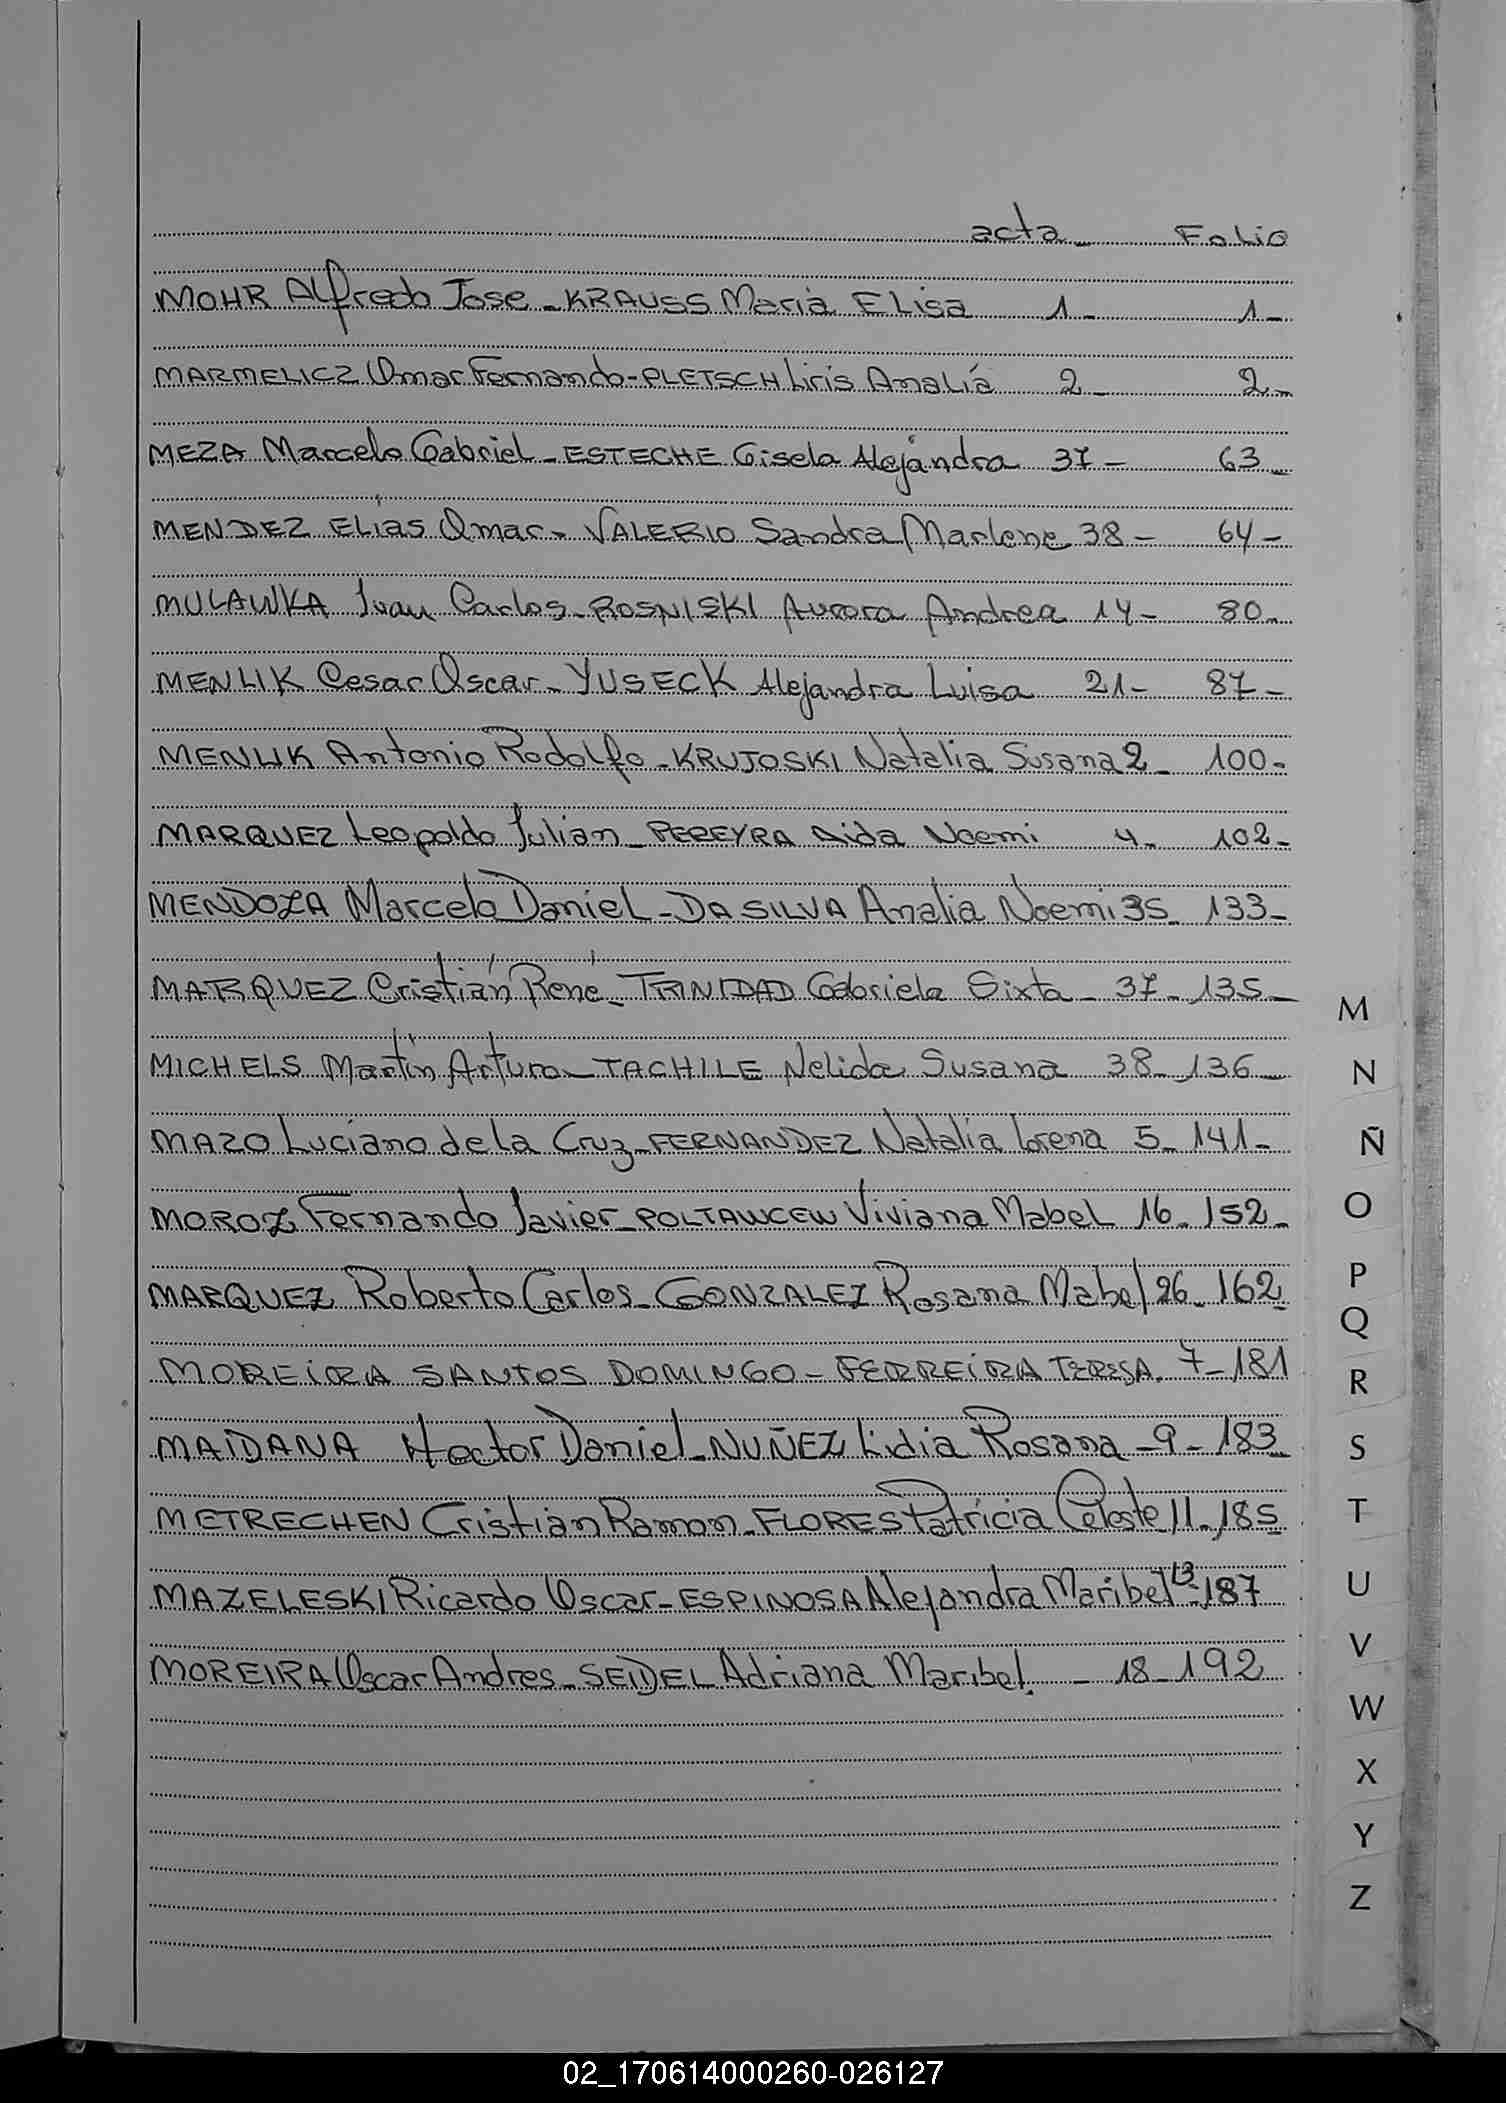 acta_ Folio
MOHR Alfredo Jose - KRAUSS Maria Elisa 1 - 1 -
MARMELICZ Omar Fernando - PLETSCH Liris Analía 2 - 2 -
MEZA Marcelo Gabriel - ESTECHE Gisela Alejandra 37 - 63 -
MENDEZ Elías Omar - VALERIO Sandra Marlene 38 - 64 -
MULAWKA Ivan Carlos - ROSNISKI Aurora Andrea 14 - 80 -
MENLIK Cesar Oscar - YUSECK Alejandra Luisa 21 - 87 -
MENLIK Antonio Rodolfo - KRUJOSKI Natalia Susana 2 - 100 -
MARQUEZ Leopoldo Julian - PEREYRA Aida Noemi 4 - 102 -
MENDOZA Marcelo Daniel - DA SILVA Analia Noemi 35 - 133 -
MARQUEZ Cristián René - TRINIDAD Gabriela Sixta - 37 - 135 -
MICHELS Martín Arturo - TACHILE Nelida Susana 38 - 136 -
MAZO Luciano de la Cruz - FERNANDEZ Natalia Lorena 5 - 141 -
MOROZ Fernando Javier - POLTAWCEW Viviana Mabel 16 - 152 -
MARQUEZ Roberto Carlos - GONZALEZ Rosana Mabel 26 - 162
MOREIRA SANTOS DOMINGO - FERREIRA TERESA. 7 - 181
MAIDANA Hector Daniel - NUÑEZ Lidia Rosana - 9 - 183
METRECHEN Cristian Ramon - FLORES Patricia Celeste 11 - 185
MAZELESKI Ricardo Oscar - ESPINOSA Alejandra Maribel 13 - 187
MOREIRA Oscar Andres - SEIDEL Adriana Maribel. - 18 - 192
M
N
Ñ
O
P
Q
R
S
T
U
V
W
X
Y
Z
02_170614000260-026127